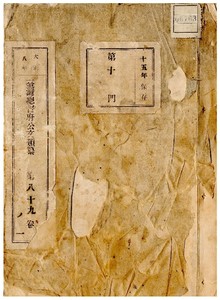 十五年保存
第十門
臺灣總督府公文類纂
第八十九卷
ノ一